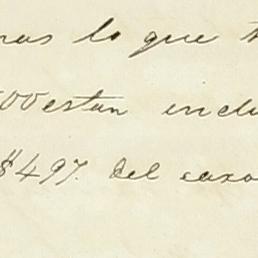 mas lo que t
00 estan inclu
$497. del caso